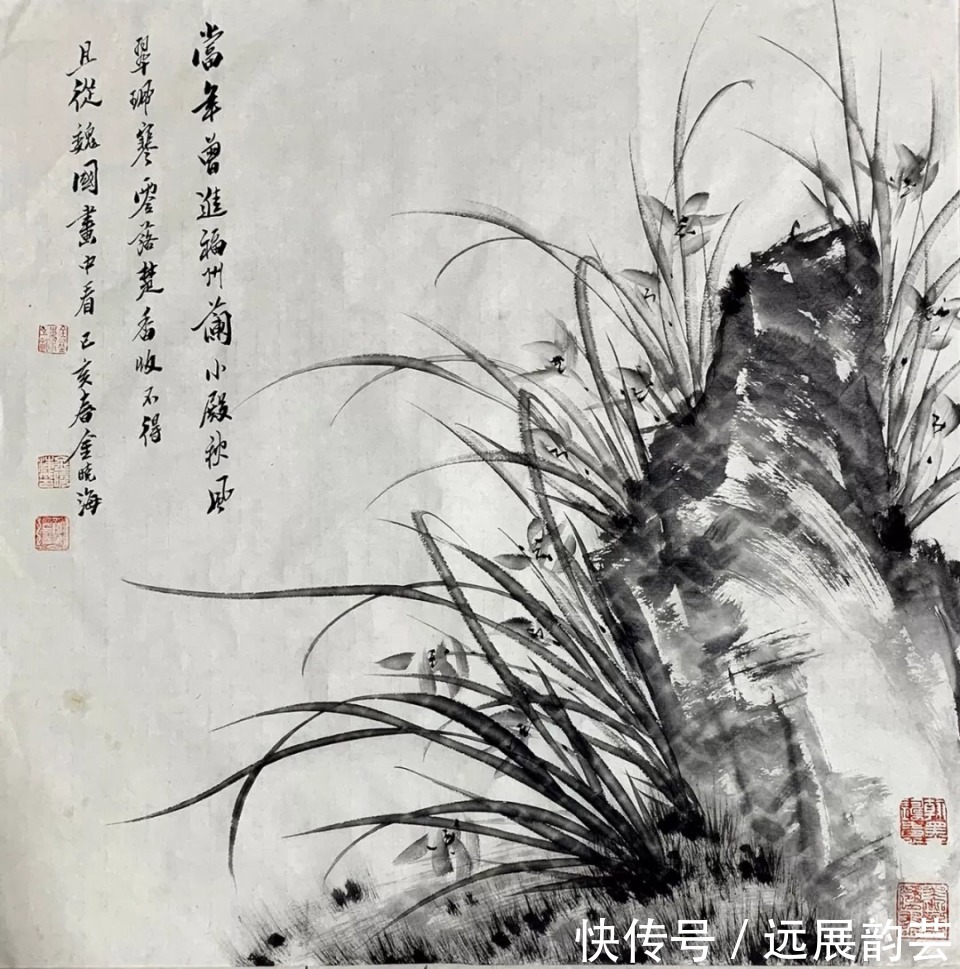 當年曾進福州蘭小殿秋風
翠珮寒零落楚香收不得
且從魏國畫中看 己亥春金晓海
快传号 / 远展韵芸